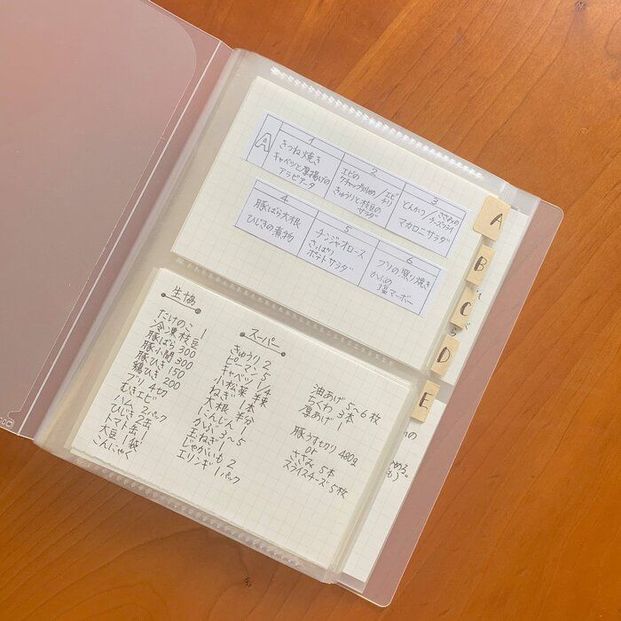 A
1
きつね焼き
キャベツと厚揚げの
アラビアータ
2
エビの
ケチャップ炒め/エビチリ
きゅうりと枝豆の
サラダ
3
とんかつ/ささみの
チーズフライ
マカロニサラダ
4
豚ばら大根
ひじきの煮物
5
チンジャオロース
さっぱり
ポテトサラダ
6
ブリの照り焼き
かぶの
マーボー
A
B
C
D
E
生協
たけのこ 1
冷凍枝豆
豚ばら 300
豚小間 300
豚ひき 150
鶏ひき 200
ブリ 4切
むきエビ
ハム 2パック
ひじき 2缶
トマト缶 1
大豆 1袋
こんにゃく
スーパー
きゅうり 2
ピーマン 5
キャベツ 1/4
小松菜 半束
ねぎ 1本
大根 半分
にんじん 1
かぶ 3〜5
玉ねぎ
じゃがいも 2
エリンギ 1パック
油あげ 5〜6枚
ちくわ 3本
厚あげ 1
豚うす切り 480g
or
ささみ 5本
スライスチーズ 5枚